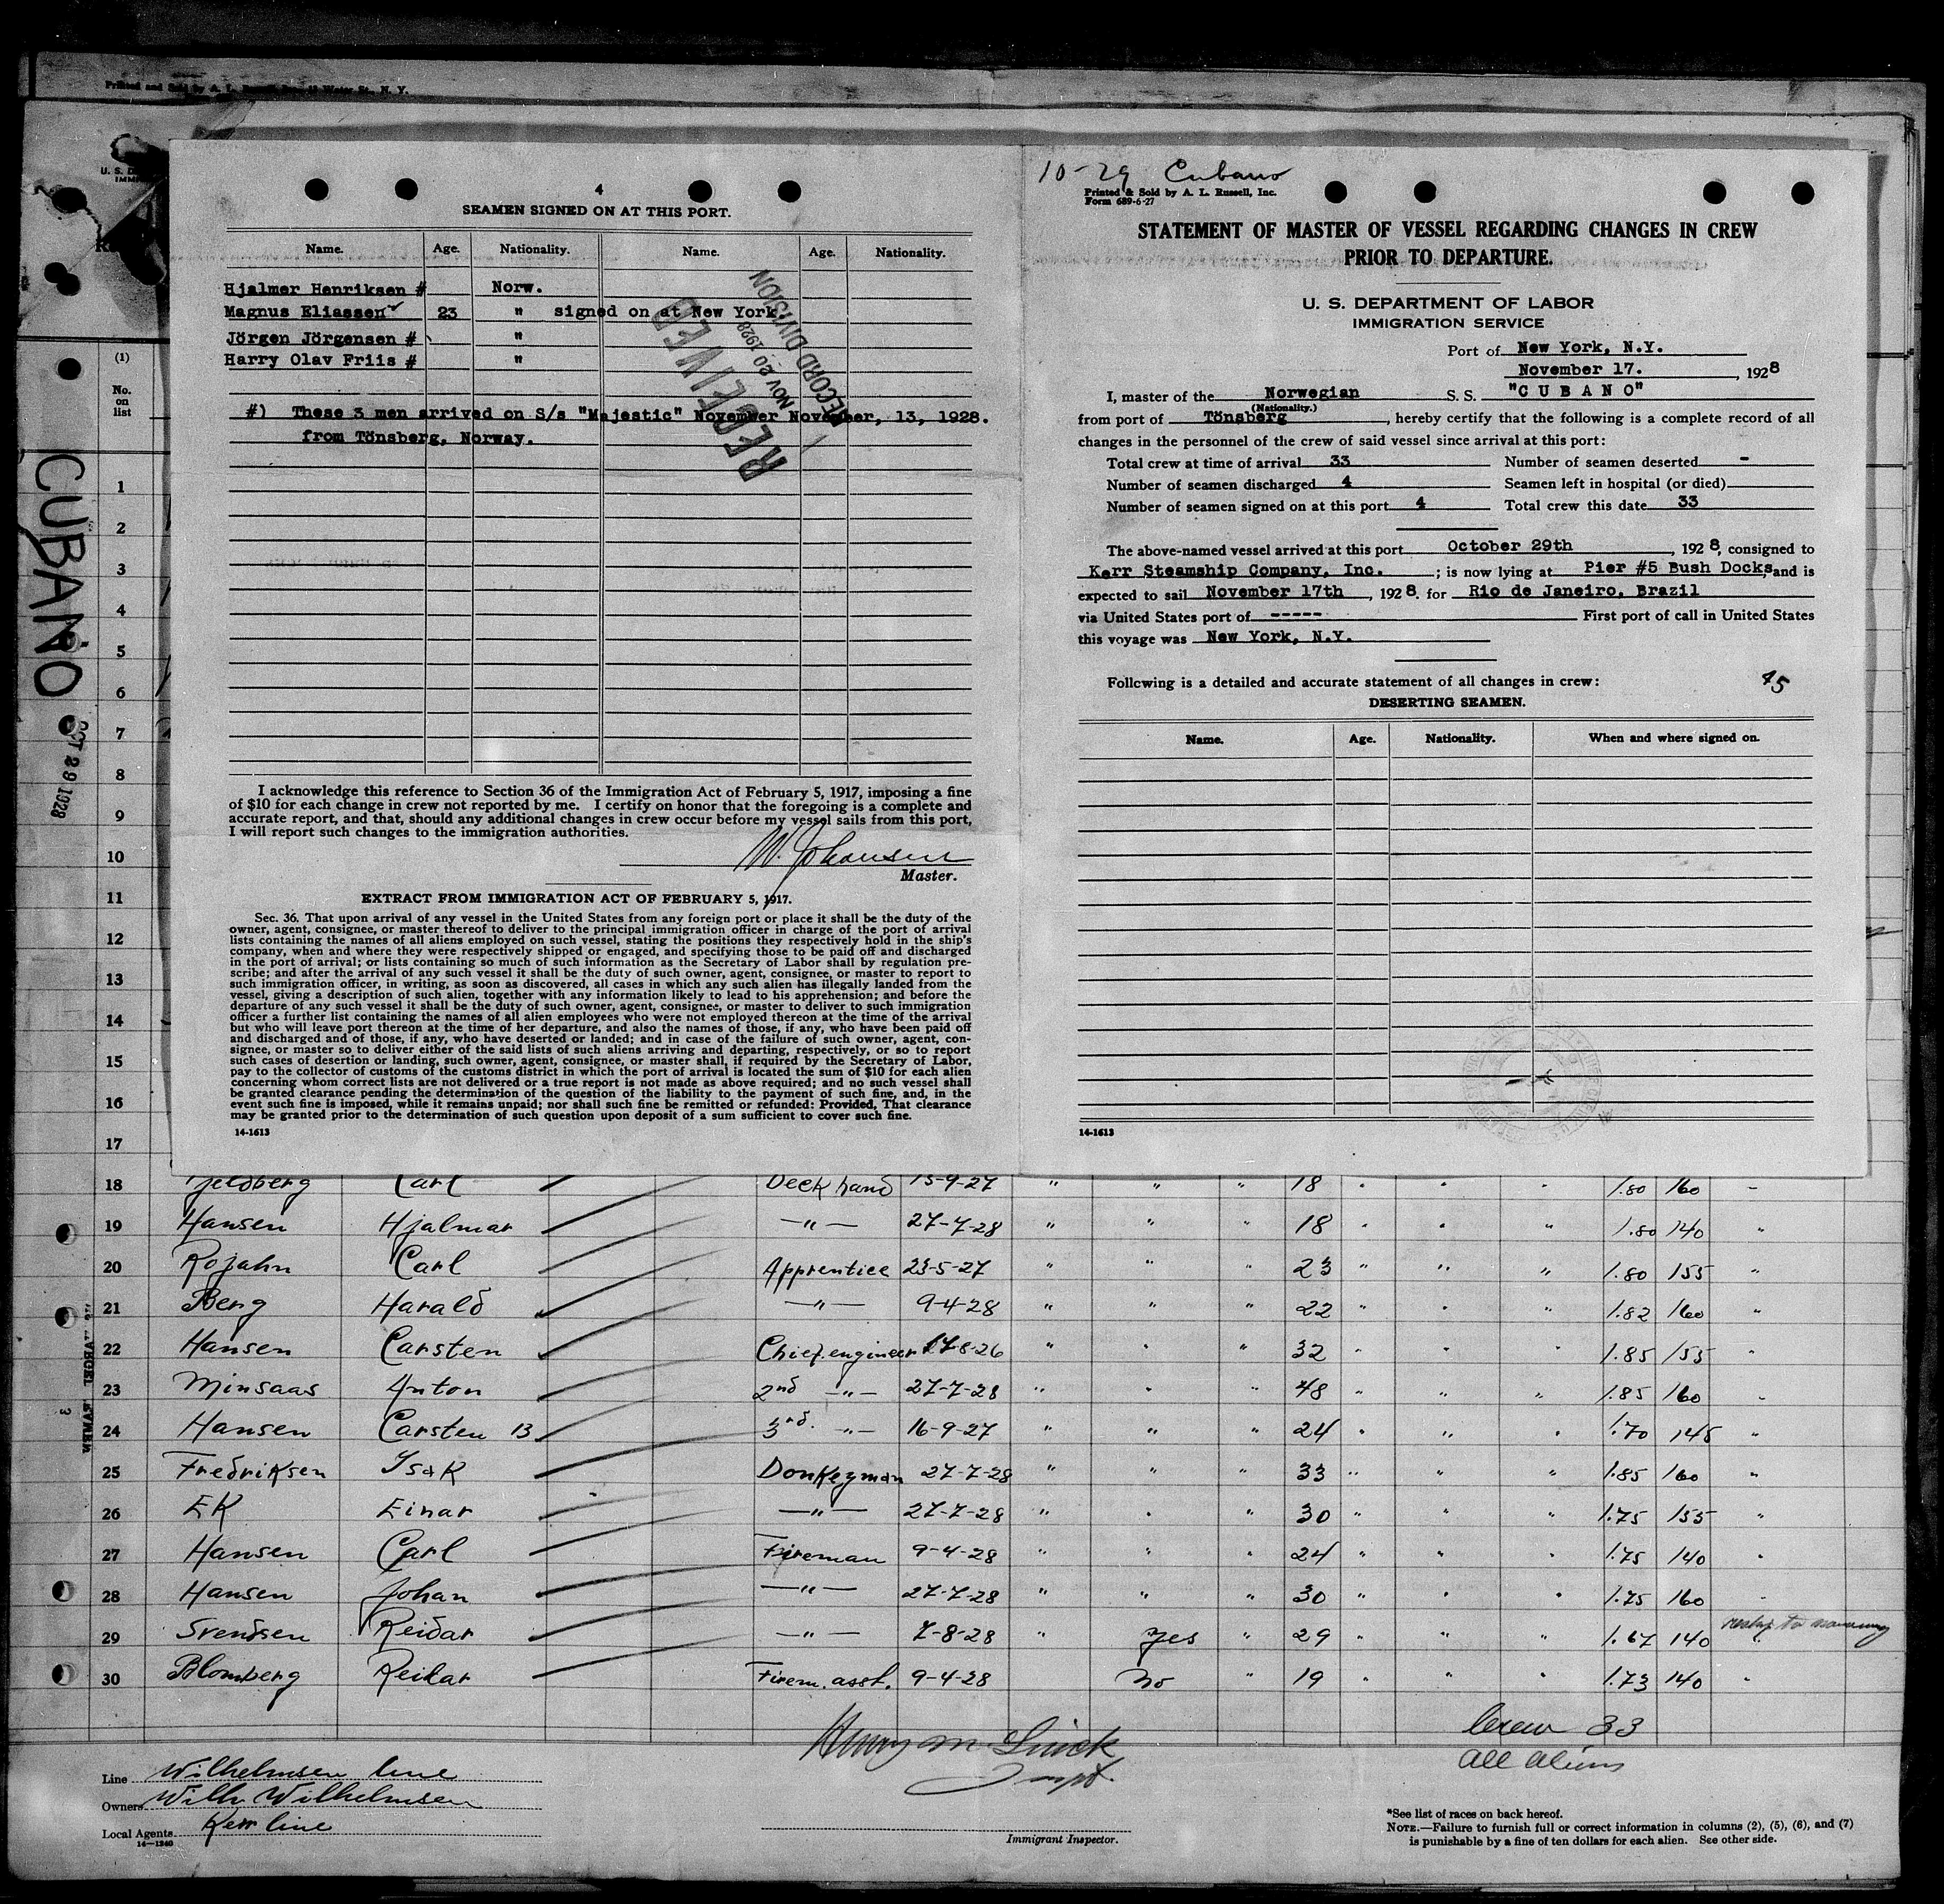 Printed and Sold by A. L. Water St., N. Y.
U. S. D
IMMI
CUBANO
OCT 29 1928
(1)
No.
on
list
1
2
3
4
5
6
7
8
9
10
11
12
13
14
15
16
17
4
SEAMEN SIGNED ON AT THIS PORT.
Name. Age. Nationality. Name. Age. Nationality.
Hjalmer Henriksen # Norw.
Magnus Eliassen 23 " signed on at New York.
Jörgen Jörgensen # "
Harry Olav Friis # "
#) These 3 men arrived on S/s "Majestic" November November, 13, 1928.
from Tönsberg, Norway.
RECEIVED
NOV 20 1928
RECORD DIVISION
I acknowledge this reference to Section 36 of the Immigration Act of February 5, 1917, imposing a fine
of $10 for each change in crew not reported by me. I certify on honor that the foregoing is a complete and
accurate report, and that, should any additional changes in crew occur before my vessel sails from this port,
I will report such changes to the immigration authorities.
W. Johansen
Master.
EXTRACT FROM IMMIGRATION ACT OF FEBRUARY 5, 1917.
Sec. 36. That upon arrival of any vessel in the United States from any foreign port or place it shall be the duty of the
owner, agent, consignee, or master thereof to deliver to the principal immigration officer in charge of the port of arrival
lists containing the names of all aliens employed on such vessel, stating the positions they respectively hold in the ship's
company, when and where they were respectively shipped or engaged, and specifying those to be paid off and discharged
in the port of arrival; or lists containing so much of such information as the Secretary of Labor shall by regulation pre-
scribe; and after the arrival of any such vessel it shall be the duty of such owner, agent, consignee, or master to report to
such immigration officer, in writing, as soon as discovered, all cases in which any such alien has illegally landed from the
vessel, giving a description of such alien, together with any information likely to lead to his apprehension; and before the
departure of any such vessel it shall be the duty of such owner, agent, consignee, or master to deliver to such immigration
officer a further list containing the names of all alien employees who were not employed thereon at the time of the arrival
but who will leave port thereon at the time of her departure, and also the names of those, if any, who have been paid off
and discharged and of those, if any, who have deserted or landed; and in case of the failure of such owner, agent, con-
signee, or master so to deliver either of the said lists of such aliens arriving and departing, respectively, or so to report
such cases of desertion or landing, such owner, agent, consignee, or master shall, if required by the Secretary of Labor,
pay to the collector of customs of the customs district in which the port of arrival is located the sum of $10 for each alien
concerning whom correct lists are not delivered or a true report is not made as above required; and no such vessel shall
be granted clearance pending the determination of the question of the liability to the payment of such fine, and, in the
event such fine is imposed, while it remains unpaid; nor shall such fine be remitted or refunded: Provided, That clearance
may be granted prior to the determination of such question upon deposit of a sum sufficient to cover such fine.
14-1613
10-29 Cubano
Printed & Sold by A. L. Russell, Inc.
Form 689-6-27
STATEMENT OF MASTER OF VESSEL REGARDING CHANGES IN CREW
PRIOR TO DEPARTURE.
U. S. DEPARTMENT OF LABOR
IMMIGRATION SERVICE
Port of New York, N.Y.
November 17. , 1928
I, master of the Norwegian S. S. "CUBANO"
(Nationality.)
from port of Tönsberg , hereby certify that the following is a complete record of all
changes in the personnel of the crew of said vessel since arrival at this port:
Total crew at time of arrival 33 Number of seamen deserted -
Number of seamen discharged 4 Seamen left in hospital (or died)
Number of seamen signed on at this port 4 Total crew this date 33
The above-named vessel arrived at this port October 29th , 1928, consigned to
Kerr Steamship Company, Inc. ; is now lying at Pier #5 Bush Docks, and is
expected to sail November 17th , 1928. for Rio de Janeiro, Brazil
via United States port of ----- First port of call in United States
this voyage was New York, N.Y.
Following is a detailed and accurate statement of all changes in crew: 45
DESERTING SEAMEN.
Name. Age. Nationality. When and where signed on.
14-1613
18 Carl Deck hand 15-9-27 " " " 18 " " " 1.80 160 "
19 Hansen Hjalmar —"— 27-7-28 " " " 18 " " " 1.80 140 "
20 Rojahn Carl Apprentice 23-5-27 " " " 23 " " " 1.80 155 "
21 Berg Harald —"— 9-4-28 " " " 22 " " " 1.82 160 "
22 Hansen Carsten Chief engineer 17-8-26 " " " 32 " " " 1.85 155 "
23 Minsaas Anton 2nd —"— 27-7-28 " " " 48 " " " 1.85 160 "
24 Hansen Carsten 13 3rd. —"— 16-9-27 " " " 24 " " " 1.70 145 "
25 Fredriksen Isak Donkeyman 27-7-28 " " " 33 " " " 1.85 160 "
26 Ek Einar —"— 27-7-28 " " " 30 " " " 1.75 155 "
27 Hansen Carl Fireman 9-4-28 " " " 24 " " " 1.75 140 "
28 Hansen Johan —"— 27-7-28 " " " 30 " " " 1.75 160 "
29 Svendsen Reidar —"— 7-8-28 " yes " 29 " " " 1.67 140 "
30 Blomberg Reidar Firem. asst. 9-4-28 no " 19 " " " 1.73 140 "
Crew 33
all aliens
Line Wilhelmsen line
Owners Wilh Wilhelmsen
Local Agents Kerr line
14-1240
Immigrant Inspector.
*See list of races on back hereof.
NOTE.—Failure to furnish full or correct information in columns (2), (5), (6), and (7)
is punishable by a fine of ten dollars for each alien. See other side.